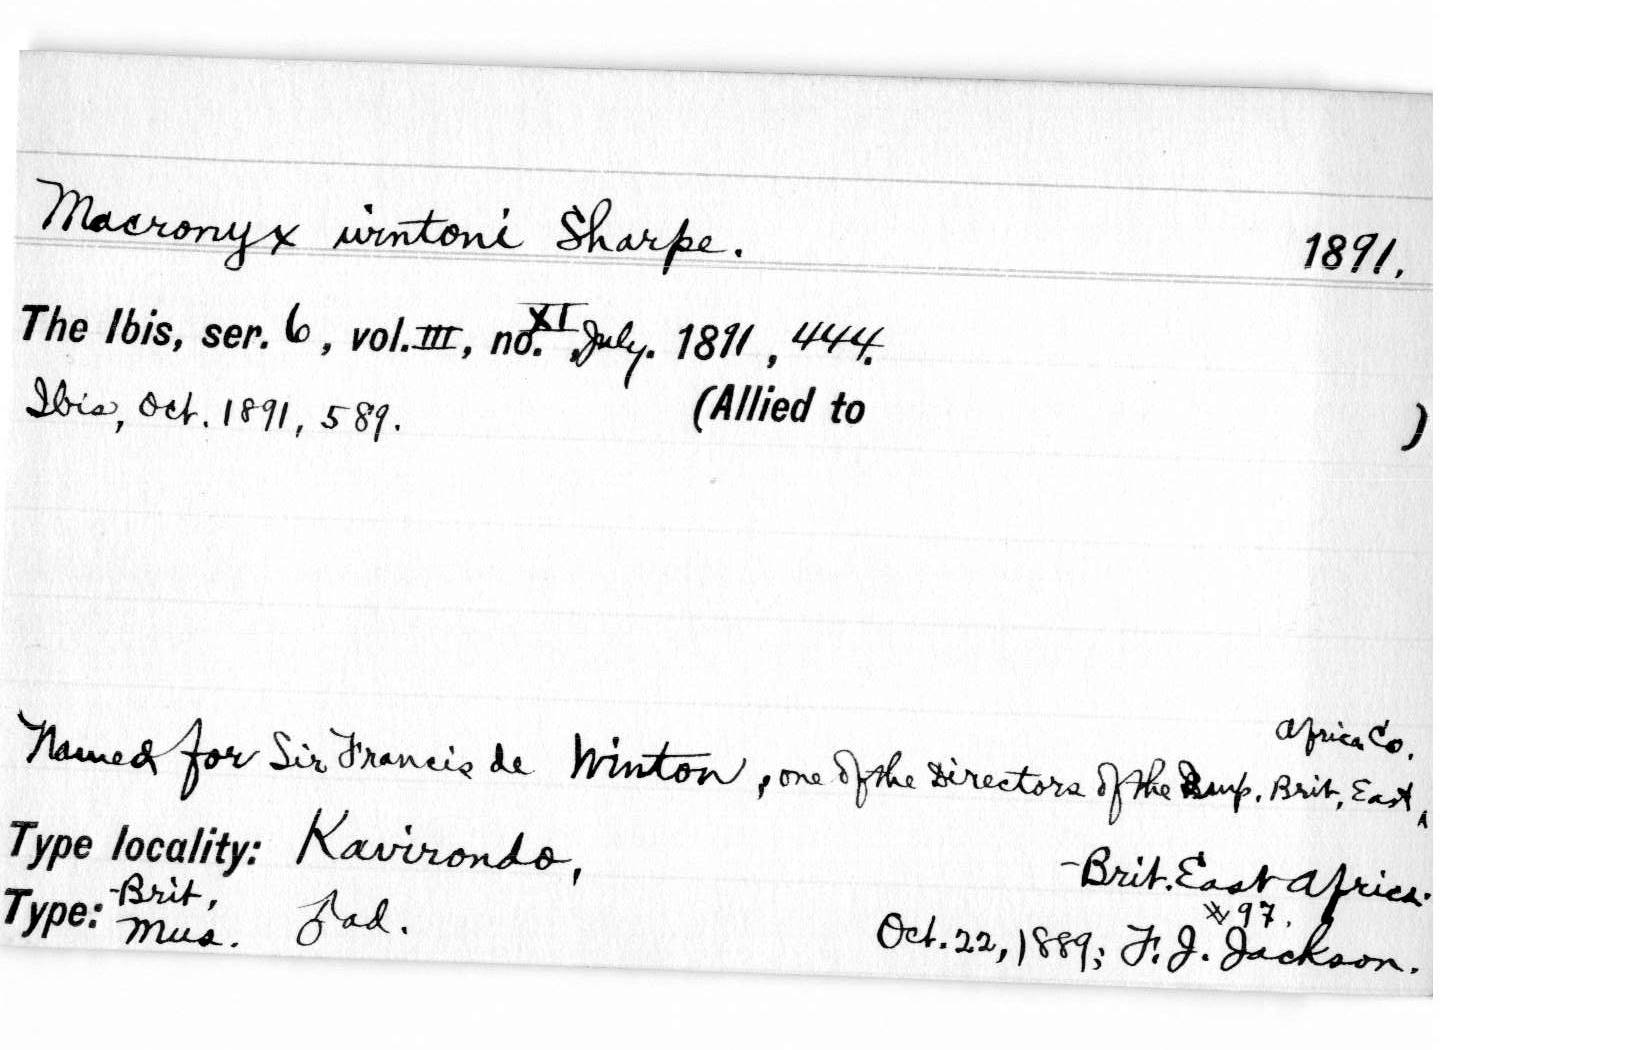 Macronyx wintoni Sharpe. 1891.
The Ibis, ser. 6, vol. III, no. XI, July. 1891, 444.
Ibis, Oct. 1891, 589. (Allied to )
Named for Sir Francis de Winton, one of the Directors of the Imp. Brit. East Africa Co.
Type locality: Kavirondo, -Brit. East Africa.
Type: Brit. Mus. ad. #97.
Oct. 22, 1889; F. J. Jackson.